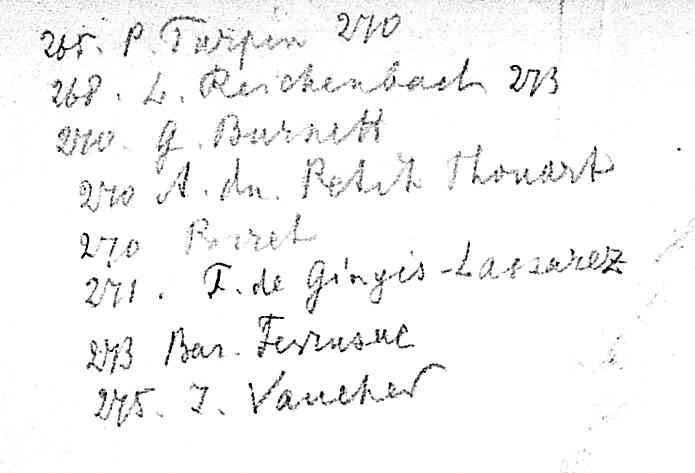 265. P. Turpin 270
268. L. Reichenbach 273
270. G. Burnett
270 A. du. Petit Thouart
270 Poiret
271. F. de Gingis-Lassarez
273 Bar. Ferussac
275. J. Vaucher